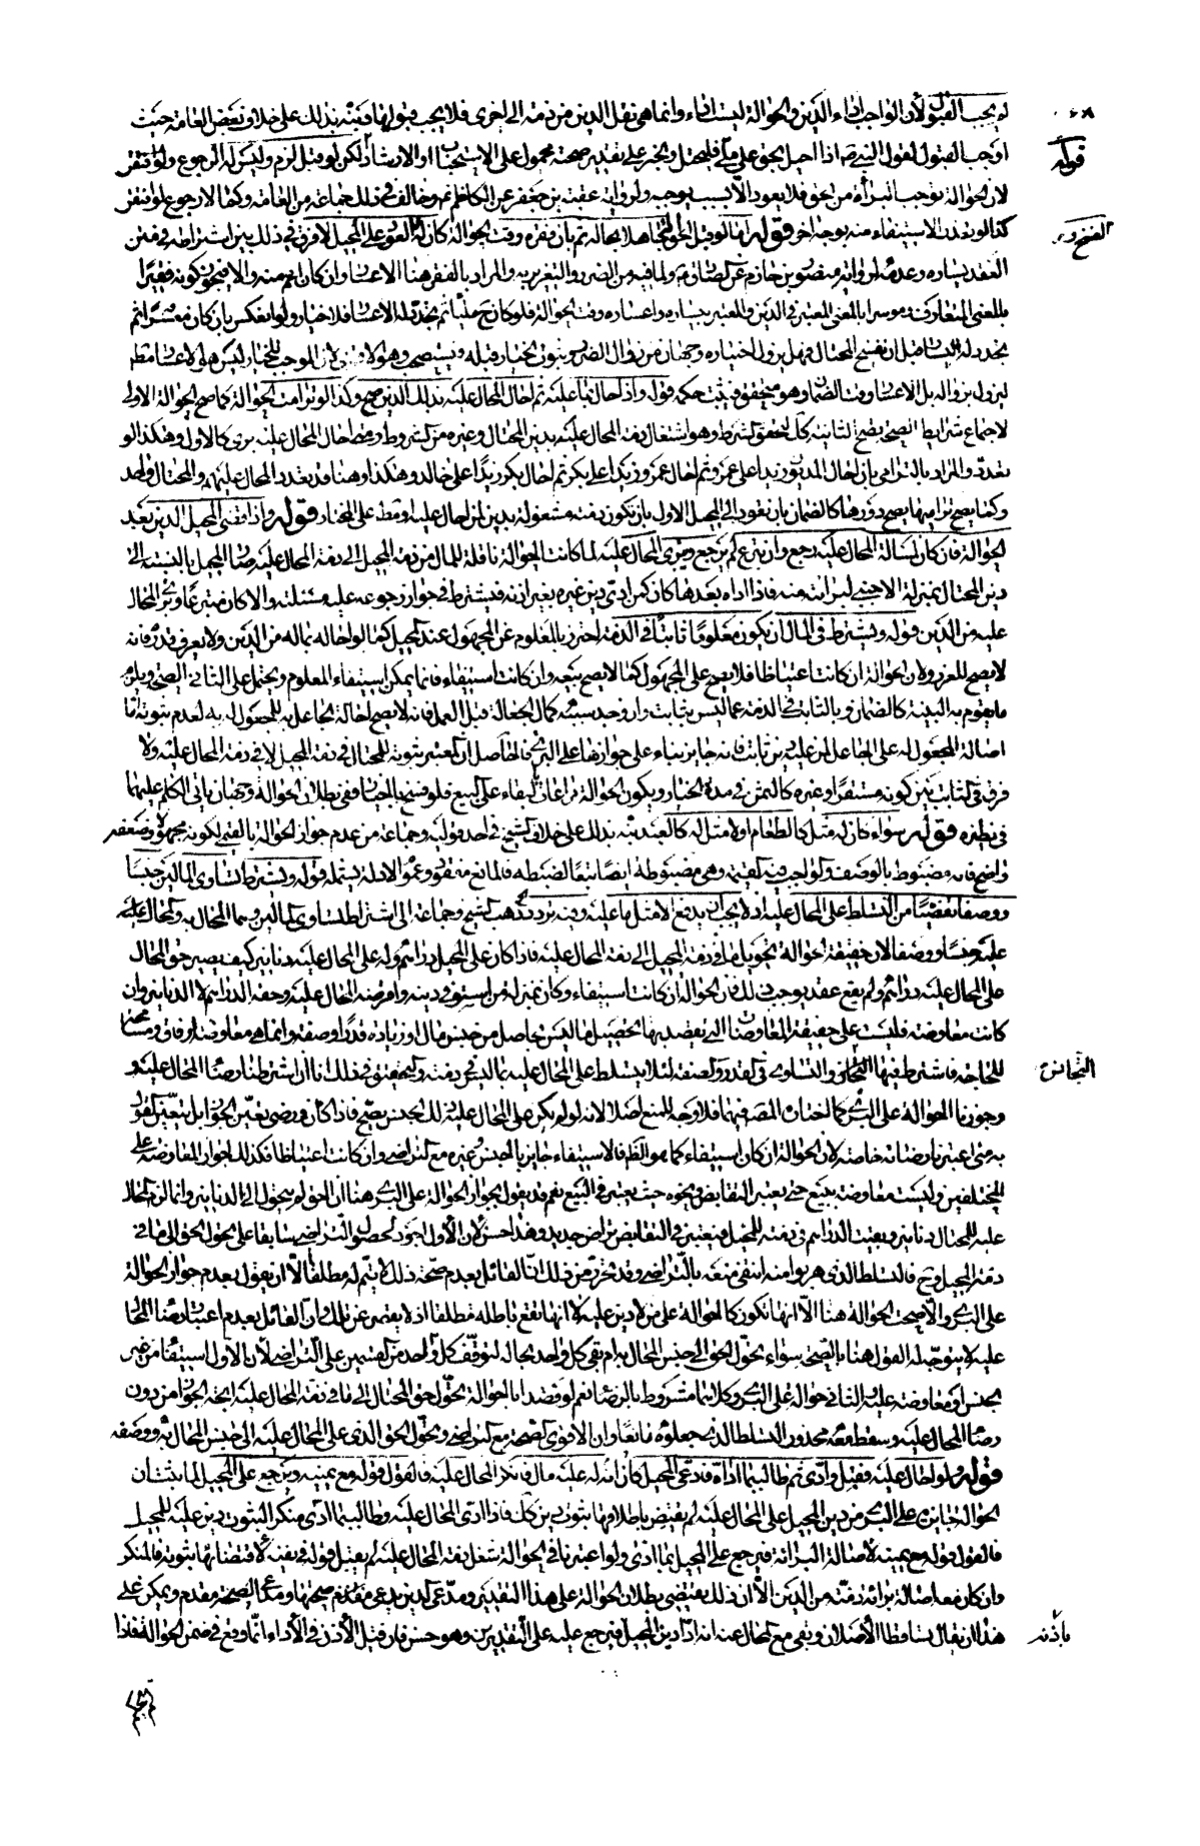 لم يجب القبول لأن الواجب اداء الدين والحوالة ليست اداء وانما هي نقل الدين من ذمة الى اخرى فلا يجب قبولها ونبه بذلك على خلاف بعض العامة حيث
اوجب القبول لقول النبي ص اذا احيل بحق على ملي فليحتل والخبر على تقدير صحته محمول على الاستحباب او الارشاد لكن لو قبل لزم وليس له الرجوع ولو افتقر
لان الحوالة توجب البراءة من الحق فلا يعود الا بسبب يوجبه ولرواية عقبة بن جعفر عن الكاظم ع وخالف في ذلك جماعة من العامة وكما لا رجوع لو افتقر
كذا لو تعذر الاستيفاء منه بوجه اخر قوله اما لو قبل الحوالة جاهلا بحاله ثم بان فقره وقت الحوالة كان له العود على المحيل لا فرق في ذلك بين اشتراطه في متن
العقد يساره وعدمه لرواية منصور بن حازم عن الصادق ع ولما فيه من الضرر والتغرير به والمراد بالفقر هنا الاعسار وان كان اعم منه والا فيجوز كونه فقيرا
بالمعنى المتعارف وموسرا بالمعنى المعتبر في الدين والمعتبر يساره واعساره وقت الحوالة فلو كان ح مليا ثم تجدد له الاعسار فلا خيار ولو انعكس بان كان معسرا ثم
تجدد له اليسار قبل ان يفسخ المحتال فهل يزول اختياره وجهان من زوال الضرر وثبوت الخيار قبله فيستصحب وهو الاقوى لان الموجب للخيار ليس هو الاعسار مطلقا
ليزول بزواله بل الاعسار وقت الضمان وهو متحقق فيثبت حكمه قوله واذا احال بما عليه ثم احال المحال عليه بذلك الدين صح وكذا لو ترامت الحوالة كما صح الحوالة الاولى
لاجتماع شرايط الصحة يصح الثانية كك لتحقق الشرط وهو اشتغال ذمة المحال عليه بدين المحتال وغيره من الشروط ومتى احال المحال عليه برئ كالاول وهكذا لو
تعددت والمراد بالترامي بان احال المديون زيدا على عمرو ثم احال عمرو زيدا على بكر ثم احال بكر زيدا على خالد وهكذا وهنا قد تعدد المحال عليهم والمحتال واحد
وكما يصح تراميها يصح دورها كالضمان بان تعود الى المحيل الاول بان تكون ذمته مشغولة بدين لمن احال عليه او مط على المختار قوله واذا قضى المحيل الدين بعد
الحوالة فان كان بمسألة المحال عليه رجع وان تبرع لم يرجع ويبرئ المحال عليه لما كانت الحوالة ناقلة للمال من ذمة المحيل الى ذمة المحال عليه صار المحيل بالنسبة الى
دين المحتال بمنزلة الاجنبي لبراءته منه فاذا اداه بعدها كان كمن ادى دين غيره بغير اذنه فيشترط في جواز رجوعه عليه مسئلته والا كان متبرعا وبرئ المحال
عليه من الدين قوله ويشترط في المال ان يكون معلوما ثابتا في الذمة احترز بالمعلوم عن المجهول عند المحيل كما لو احاله بماله من الدين ولا يعرف قدره فانه
لا يصح للغرر ولان الحوالة ان كانت اعتياضا فلا يصح على المجهول كما لا يصح بيعه وان كانت استيفاء فانما يمكن استيفاء المعلوم ويحتمل على الثاني الصحة ويلزم
ما يقوم به البينة كالضمان وبالثابت في الذمة عما ليس بثابت وان وجد سببه كمال الجعالة قبل العمل فانه لا يصح احالة الجاعل به للمجعول له به لعدم ثبوته اما
احالة المجعول له على الجاعل لمن عليه دين ثابت فانه جايز بناء على جوازها على البرئ فالحاصل ان المعتبر ثبوته للمحتال في ذمة المحيل لا في ذمة المحال عليه ولا
فرق في الثابت بين كونه مستقرا وغيره كالثمن في مدة الخيار ويكون الحوالة مراعاة بالبقاء على البيع فلو فسخ بالخيار ففي بطلان الحوالة وجهان ياتي الكلام عليهما
في نظيره قوله سواء كان له مثل كالطعام او لا مثل له كالعبد نبه بذلك على خلاف الشيخ في احد قوليه وجماعة من عدم جواز الحوالة بالقيمي لكونه مجهولا وضعفه
واضح فانه مضبوط بالوصف والواجب فيه القيمة وهي مضبوطة ايضا تبعا لضبطه فالمانع منتف وعموم الادلة يشمله قوله ويشترط تساوي المالين جنسا
ووصفا تفصيا من التسلط على المحال عليه اذ لا يجب ان يدفع الا مثل ما عليه وفيه تردد ذهب الشيخ وجماعة الى اشتراط تساوي المالين وهما المحال به والمحال عليه
عليه جنسا ووصفا لان حقيقة الحوالة تحويل ما في ذمة المحيل الى ذمة المحال عليه فاذا كان على المحيل دراهم وله على المحال عليه دنانير كيف يصير حق المحال
على المحال عليه دراهم ولم يقع عقد يوجب ذلك فان الحوالة ان كانت استيفاء وكان بمنزلة من استوفى دينه واقرضه المحال عليه وحقه الدراهم لا الدنانير وان
كانت معاوضة فليست على حقيقة المعاوضات التي يقصد بها تحصيل ما ليس بحاصل من جنس مال او زيادة قدر او صفة وانما هي معاوضة ارفاق ومسامحة
للحاجة فاشترط فيها التجانس والتساوي في القدر والصفة لئلا يتسلط على المحال عليه بما ليس في ذمته والتحقيق في ذلك انا ان اشترطنا رضا المحال عليه و
وجوزنا الحوالة على البرئ كما اختاره المص فيهما فلا وجه للمنع اصلا لانه لو لم يكن على المحال عليه ذلك الجنس يصح فاذا كان ورضي تعين الجواز بل يتعين القول
به متى اعتبرنا رضاه خاصة لان الحوالة ان كان استيفاء كما هو الظ فالاستيفاء جايز بالجنس وغيره مع التراضي وان كانت اعتياضا فكذلك لجواز المعاوضة على
المختلفين وليست معاوضة بيع حتى يعتبر التقابض ونحوه حيث يعتبر في البيع نعم قد يقول بجواز الحوالة على البرئ هنا ان الحق لم يتحول الى الدنانير وانما لزم المحال
عليه للمحتال دنانير وبقيت الدراهم في ذمته للمحيل فيعتبر في التقابض تراض جديد وهذا حسن الا ان الاول اجود لحصول التراضي سابقا على تحول الحق الى ما في
ذمة المحيل وح فالتسلط الذي هربوا منه انتفى منعه بالتراضي وقد تحرر من ذلك ان القائل بعدم صحة ذلك لا يتم له مطلقا الا ان يقول بعدم جواز الحوالة
على البرئ والا صحت الحوالة هنا الا انها تكون كالحوالة على من لا دين عليه لا انها تقع باطلة مطلقا اذ لا يقصر عن تلك وان القائل بعدم اعتبار رضا المحال
عليه لا يتوجه له القول هنا بالصحة سواء تحول الحق الى جنس المحال به ام بقي كل واحد بحاله لتوقف كل واحد من القسمين على التراضي لان الاول استيفاء من غير
الجنس او معاوضة عليه والثاني حوالة على البرئ وكلاهما مشروط بالرضا نعم لو قصدا بالحوالة تحول حق المحتال الى ما في ذمة المحال عليه اتجه الجواز من دون
رضا المحال عليه وسقط معه محذور التسلط الذي جعلوه مانعا وان الاقوى الصحة مع التراضي وتحول الحق الذي على المحال عليه الى جنس المحال به ووصفه
قوله ولو احال عليه فقبل وادى ثم طالب بما اداه فادعى المحيل كان انه له عليه مال فانكر المحال عليه فالقول قوله مع يمينه ويرجع على المحيل لما ثبت ان
الحوالة جائزة على البرئ من دين المحيل على المحال عليه لم يقتض باطلاقها ثبوت دين كك فاذا ادى المحال عليه وطالب بما ادى منكر الثبوت دين عليه للمحيل
فالقول قوله مع يمينه لاصالة البراءة فيرجع على المحيل بما ادى ولو اعتبرنا في الحوالة شغل ذمة المحال عليه لم يقبل قوله في نفيه لاقتضائها ثبوته فالمنكر
وان كان معه اصالة براءة ذمته من الدين الا ان ذلك يقتضي بطلان الحوالة على هذا التقدير ومدعى الدين يدعي صحتها ومدعى الصحة مقدم ويمكن على
هذا ان يقال تساقط الاصلان وبقي مع المحال عنه انه ادى دين المحيل فيرجع عليه على التقديرين وهو حسن فان قيل الاذن في الاداء انما وقع في ضمن الحوالة فاذا
قوله
التجانس
باذنه